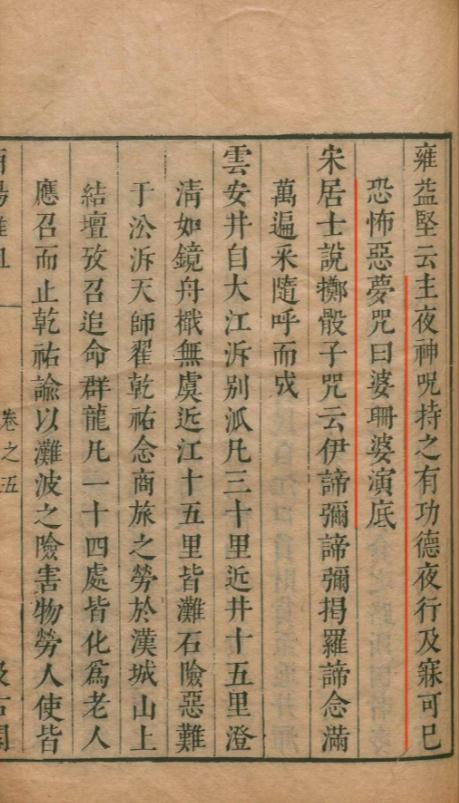 雍益堅云主夜神呪持之有功德夜行及寐可已
恐怖惡夢咒曰婆珊婆演底
宋居士說擲骰子咒云伊諦彌諦彌揭羅諦念滿
萬遍采隨呼而成
雲安井自大江泝別泒凡三十里近井十五里澄
淸如鏡舟檝無虞近江十五里皆灘石險惡難
于㳂泝天師翟乾祐念商旅之勞於漢城山上
結壇攷召追命群龍凡一十四處皆化爲老人
應召而止乾祐諭以灘波之險害物勞人使皆
卷之五